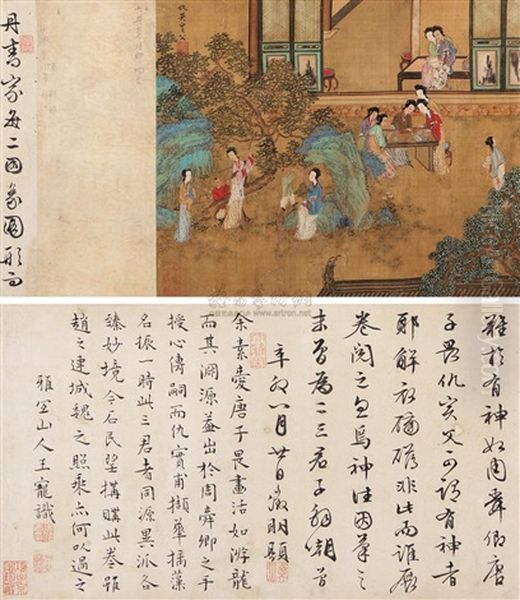 丹青家每二因象圖形而
仇英
難於有神如周舜卿唐
子畏仇實父可謂有神者
耶解衣磅礴非此而誰展
卷閱之忽焉神往因筆之
未省為二三君子胡
辛卯八月廿日徵明題
余素愛唐子畏畫活如游龍
而其淵源蓋出於周舜卿之手
授心傳嗣而仇實甫擷華摛藻
名振一時此三君者同源異派各
臻妙境今石民望搆購此卷雖
趙之連城魏之照乘亦何以過之
雅宜山人王寵識
www.artron.net